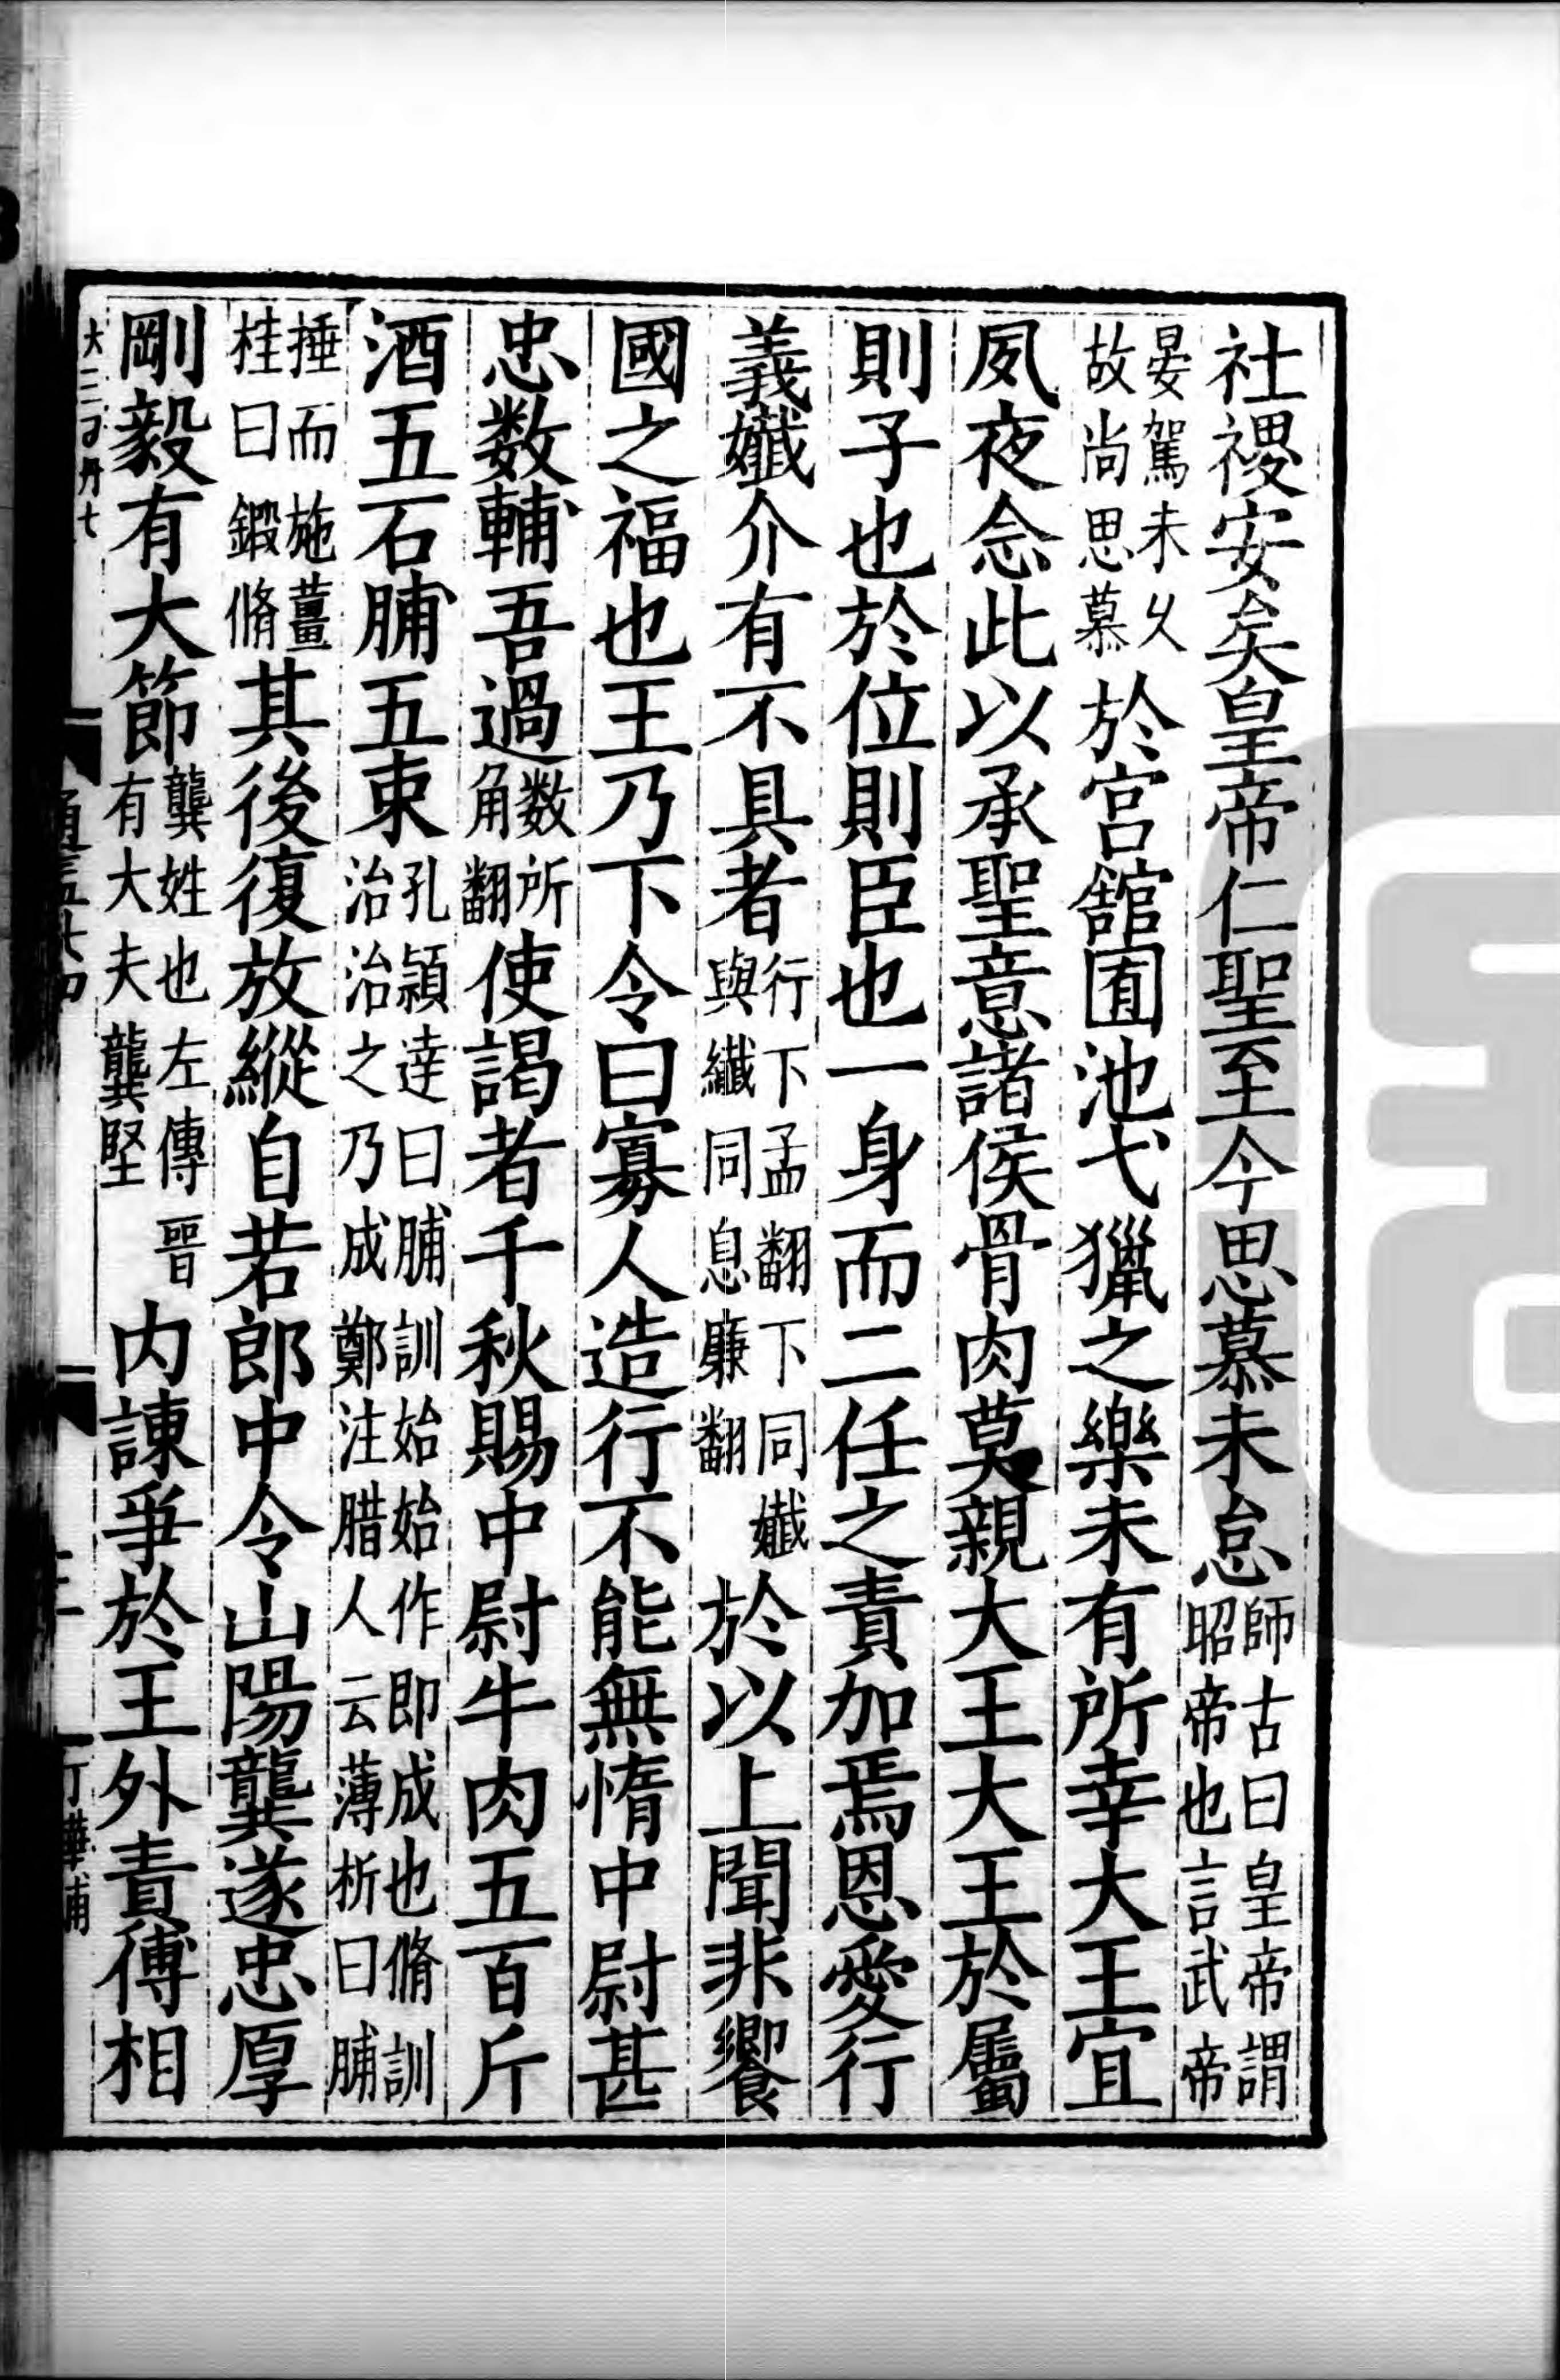 社稷安矣皇帝仁聖至今思慕未怠師古曰皇帝謂昭帝也言武帝
晏駕未乆故尚思慕於宮館囿池弋獵之樂未有所幸大王宜
夙夜念此以承聖意諸侯骨肉莫親大王大王於屬
則子也於位則臣也一身而二任之責加焉恩愛行
義孅介有不具者行下孟翻下同孅與纖同息廉翻於以上聞非饗
國之福也王乃下令曰寡人造行不能無惰中尉甚
忠数輔吾過数所角翻使謁者千秋賜中尉牛肉五百斤
酒五石脯五束孔潁逹曰脯訓始始作即成也脩訓治治之乃成鄭注腊人云薄析曰脯
捶而施薑桂曰鍛脩其後復放縱自若郎中令山陽龔遂忠厚
剛毅有大節龔姓也左傳晉有大夫龔堅内諫爭於王外責傅相